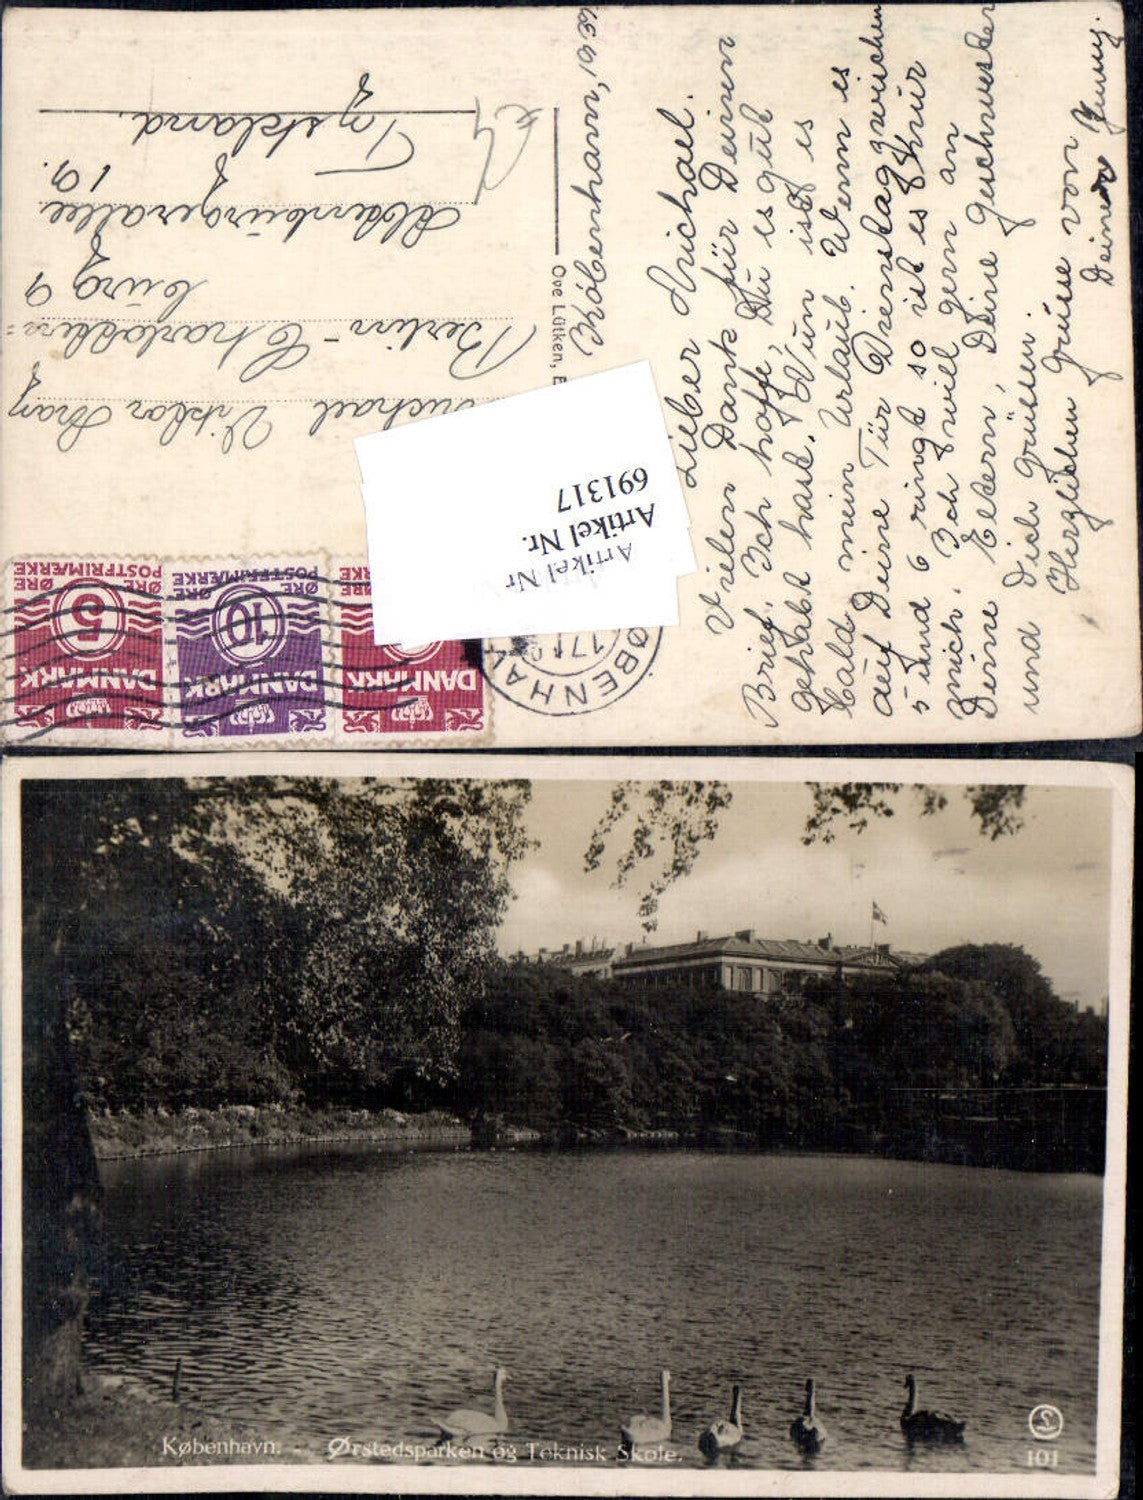 København,
Lieber Michael.
Vielen Dank für Deinen
Brief. Ich hoffe, Du es gut
gehabt hast. Nun ist es
bald mein Urlaub. Wenn es
auf Deine Tür Dienstag zwischen
5 und 6 ringt so ist es nur
mich. Ich will gern an
Deine Eltern, Deine Geschwister
und Dich grüssen.
Herzlichen Grüsse von
Deiner
Ove Lütken,
Michael Viktor
Berlin - Charlotten=
burg 9
Altenburgerallee
19.
Tyskland.
Artikel Nr.
Artikel Nr.
691317
5
ØRE
ØRE
POSTFRIMÆRKE
DANMARK
10
ØRE
ØRE
POSTFRIMÆRKE
DANMARK
DANMARK
ØBENHA
17
København. - Ørstedsparken og Teknisk Skole.
101